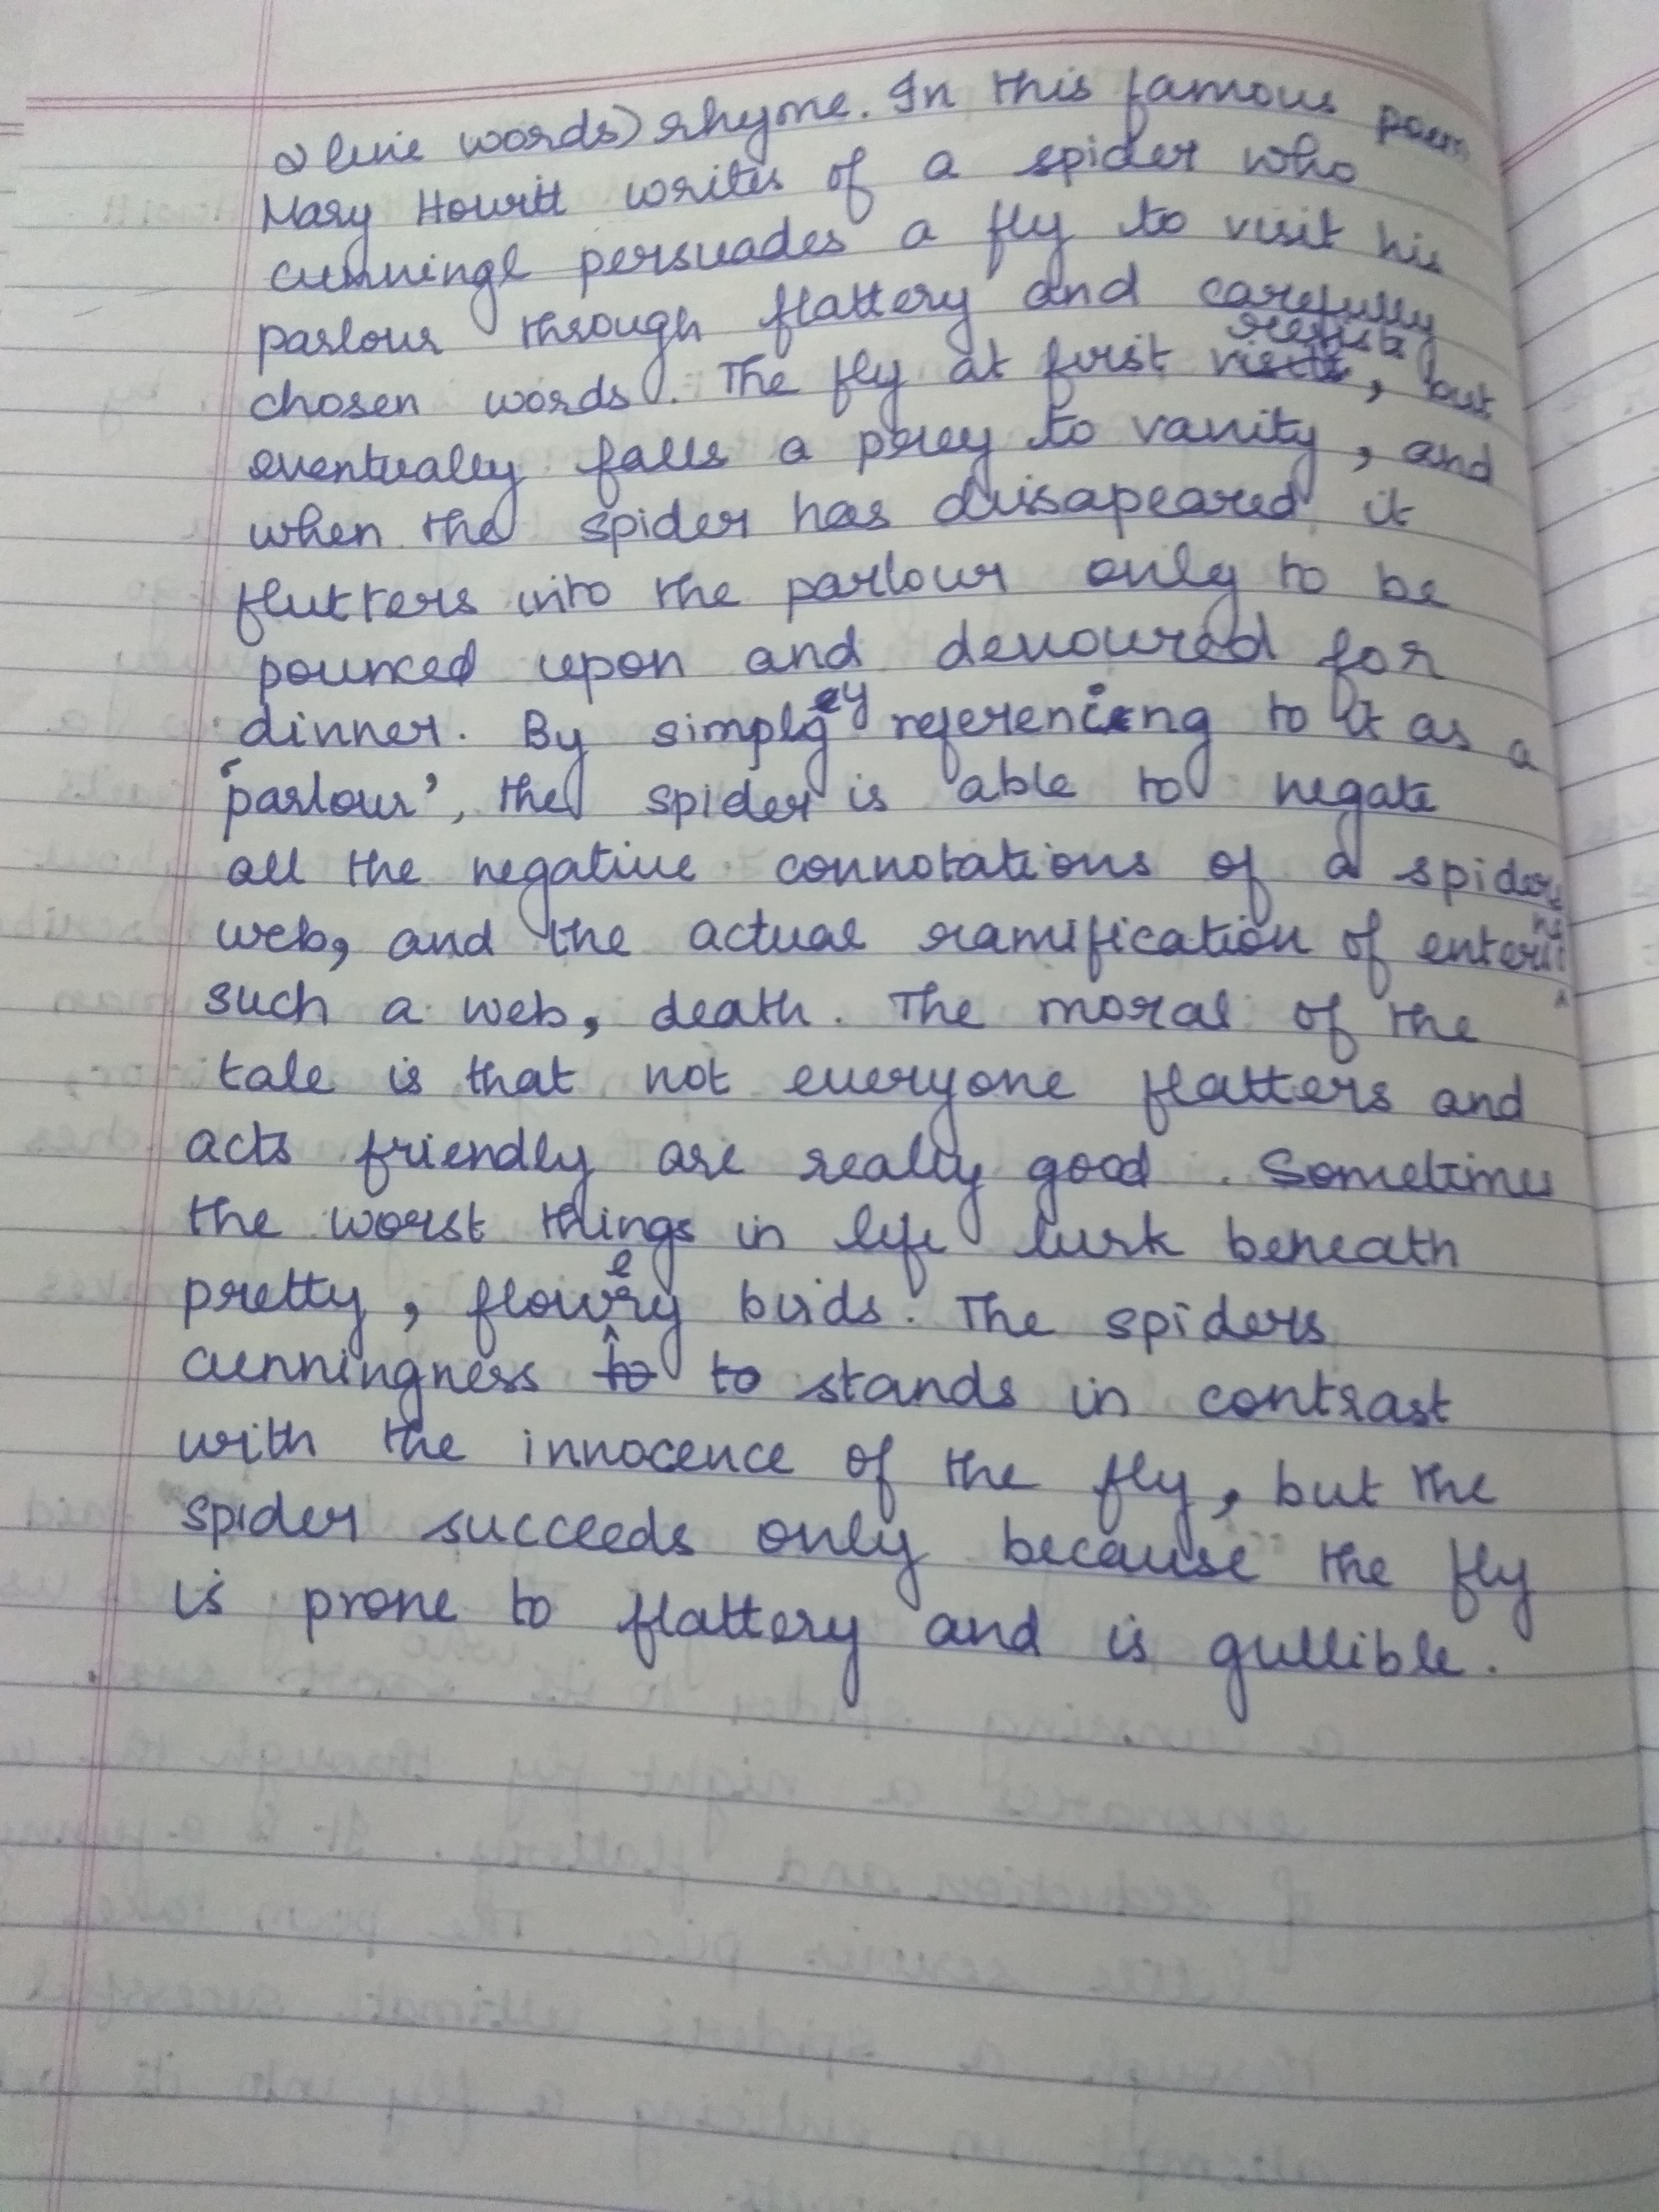 2 line words) rhyme. In this famous poem
Mary Howitt writes of a spider who
cunningl persuades a fly to visit his
parlour through flattery and carefully
chosen words. The fly at first resists, but
eventually falls a prey to vanity, and
when the spider has dissapeared it
flutters into the parlour only to be
pounced upon and devoured for
dinner. By simply referencing to it as a
'parlour', the spider is able to negate
all the negative connotations of a spiders
web, and the actual ramification of entering
such a web, death. The moral of the
tale is that not everyone flatters and
acts friendly are really good. Sometimes
the worst things in life lurk beneath
pretty, flowery birds. The spiders
cunningness to to stands in contrast
with the innocence of the fly, but the
spider succeeds only because the fly
is prone to flattery and is gullible.